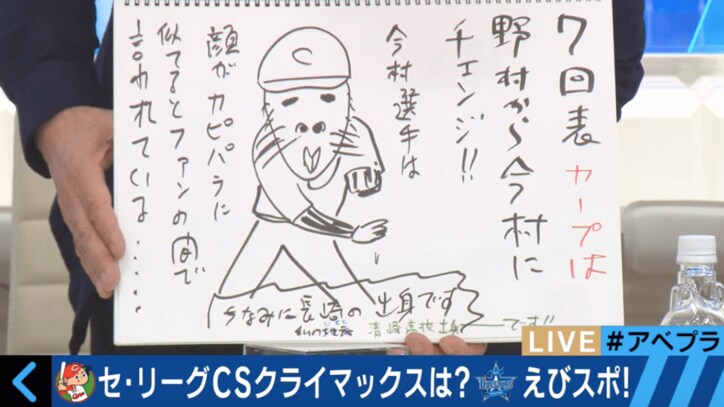 7回表 カープは
野村から今村に
チェンジ!!
今村選手は
顔がカピバラに
似てるとファンの間で
言われている……
C
ちなみに長崎の出身です
私の地元
清峰高校出身
です!!
LIVE #アベプラ
セ・リーグCSクライマックスは? えびスポ!